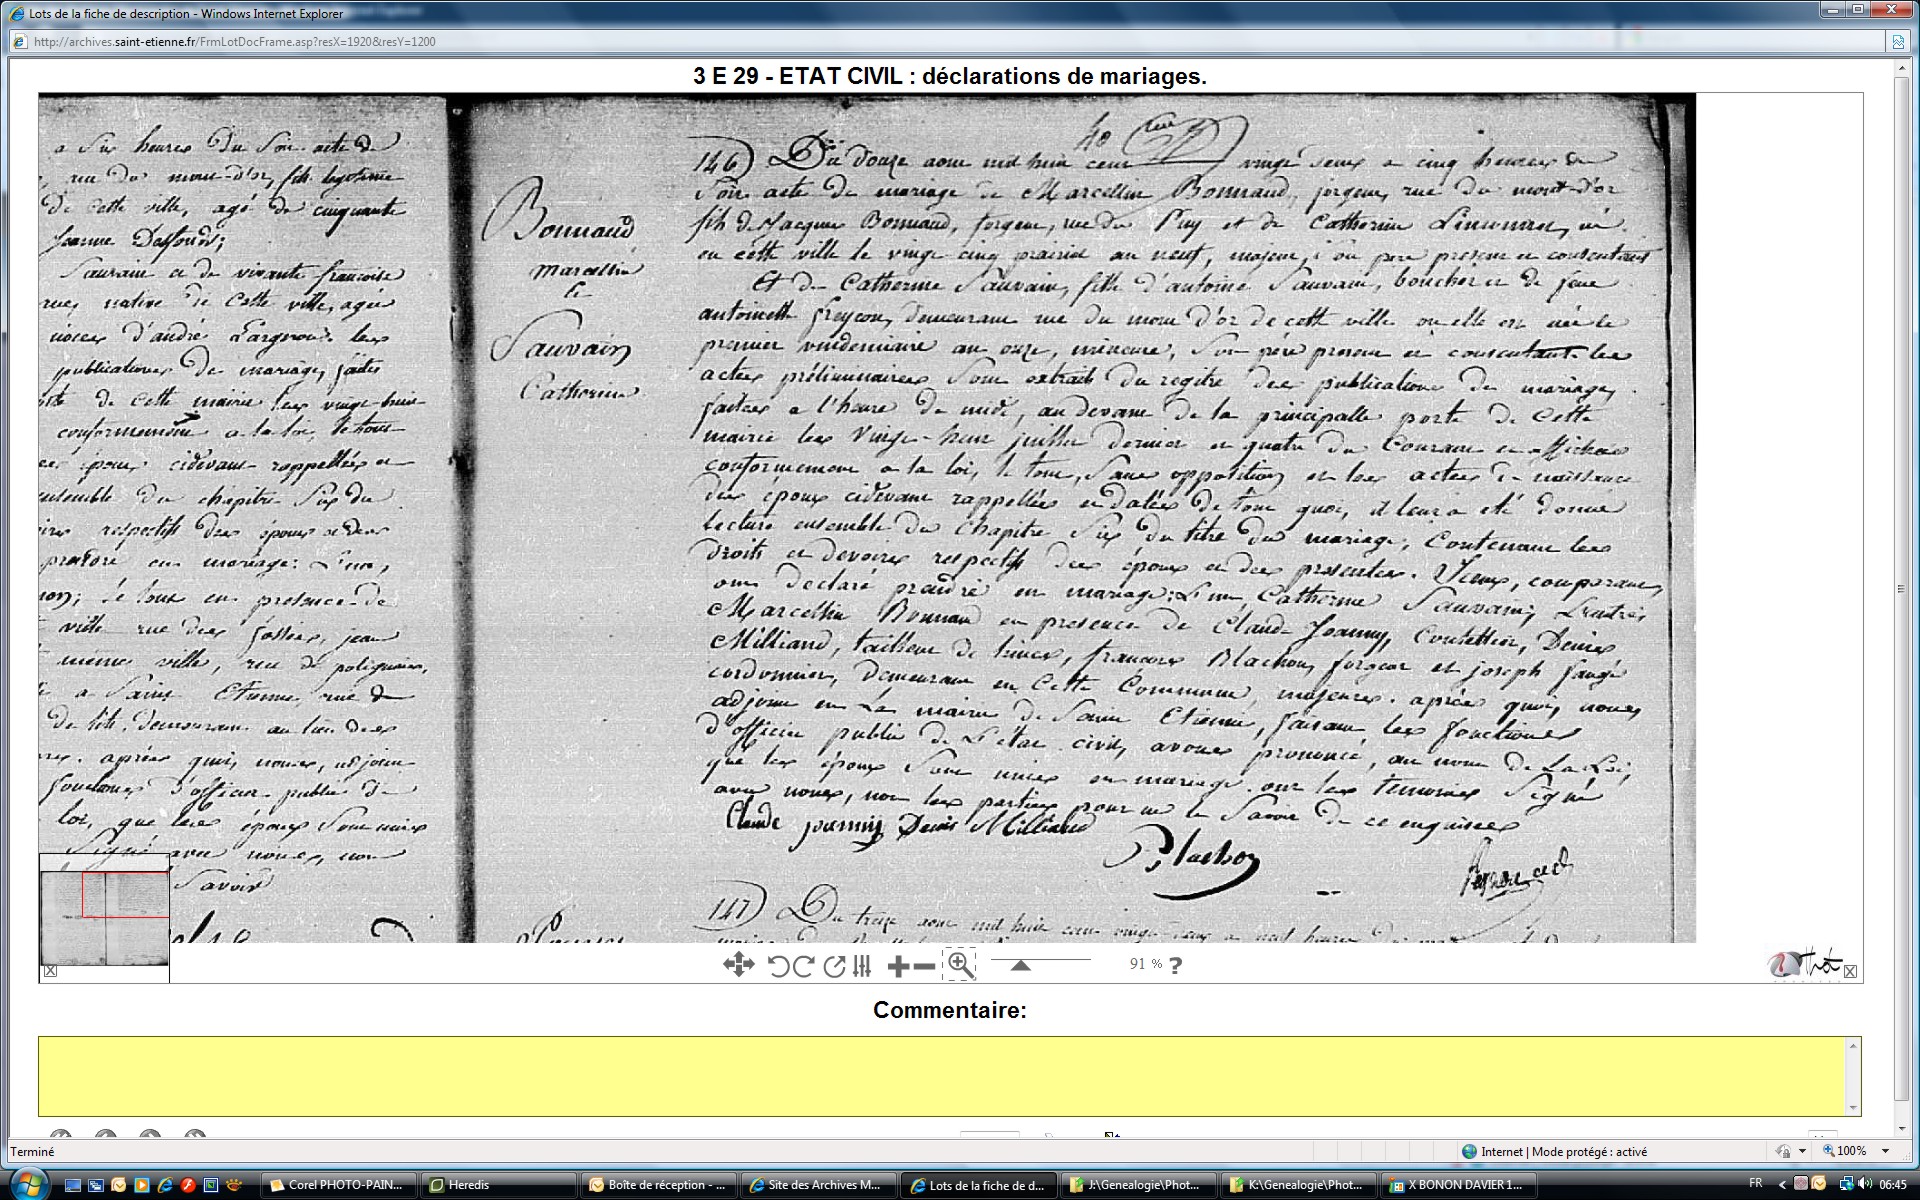 Lots de la fiche de description - Windows Internet Explorer
http://archives.saint-etienne.fr/FrmLotDocFrame.asp?resX=1920&resY=1200
3 E 29 - ETAT CIVIL : déclarations de mariages.
a Six heures du Soir acte de
rue du mont-d'or, fils legitime
de cette ville, agé de cinquante
Jeanne
Sauvain et de vivante francoise
rue, native de cette ville, agée
noces d'andré
publications de mariage, faites
de cette mairie les vingt-huit
conformement a la loi, le tout
époux cidevant rappellées et
ensemble du chapitre Six du
respectifs des époux et des
prendre en mariage: L'un,
le tout en présence de
ville rue des fossés, jean
même ville, rue de polignais,
a Saint Etienne, rue de
demeurant au lieu des
après quoi, nous, adjoint
fonctions d'officier public de
loi, que les époux Sont unis
Signé avec nous, non
Savoir
Bonnaud
Marcellin
&
Sauvain
Catherine
146) Du douze aout mil huit cent vingt deux a cinq heures du
Soir acte de mariage de Marcellin Bonnaud, forgeur, rue du mont-d'or
fils de Jacques Bonnaud, forgeur, rue du Puy et de Catherine né
en cette ville le vingt cinq prairial an neuf, majeur, Son pere present et consentant
Et de Catherine Sauvain, fille d'antoine Sauvain, boucher et de feue
antoinette freycon, demeurant rue du mont d'or de cette ville ou elle est née le
premier vendemiaire an onze, mineure, Son père present et consentant. les
actes préliminaires Sont extraits du regitre des publications de mariage,
faites a l'heure de midi, au devant de la principalle porte de cette
mairie les Vingt-huit juillet dernier et quatre du Courant et affichées
conformement a la loi, le tout, Sans opposition et les actes de naissance
des époux cidevant rappellées et datées de tout quoi, il leur a été donné
lecture ensemble du Chapitre Six du titre du mariage, Contenant les
droits et devoirs respectifs des époux et des presentes. Iceux, comparans,
ont declaré prendre en mariage: L'un, Catherine Sauvain; L'autre,
Marcellin Bonnaud en presence de Claude Joanny, Coutellier, Denis
Milliand, tailleur de limes, francois Blachon, forgeur et joseph faugé
cordonnier, demeurant en Cette Commune, majeures. après quoi, nous,
adjoint en La mairie de Saint Etienne, faisant les fonctions
d'officier public de L'état civil, avons prononcé, au nom de La Loi,
que les époux Sont unis en mariage. ont les temoins Signé
avec nous, non les parties pour ne le Savoir de ce enquises
Claude joanny Denis Milliand
Blachon
147) Du treize aout mil huit cent vingt-deux a neuf heures du
91 %
Commentaire:
Terminé
Internet | Mode protégé : activé
100%
Corel PHOTO-PAIN...
Heredis
Boîte de réception - ...
Site des Archives M...
Lots de la fiche de d...
J:\Genealogie\Phot...
K:\Genealogie\Phot...
X BONON DAVIER 1...
FR
06:45